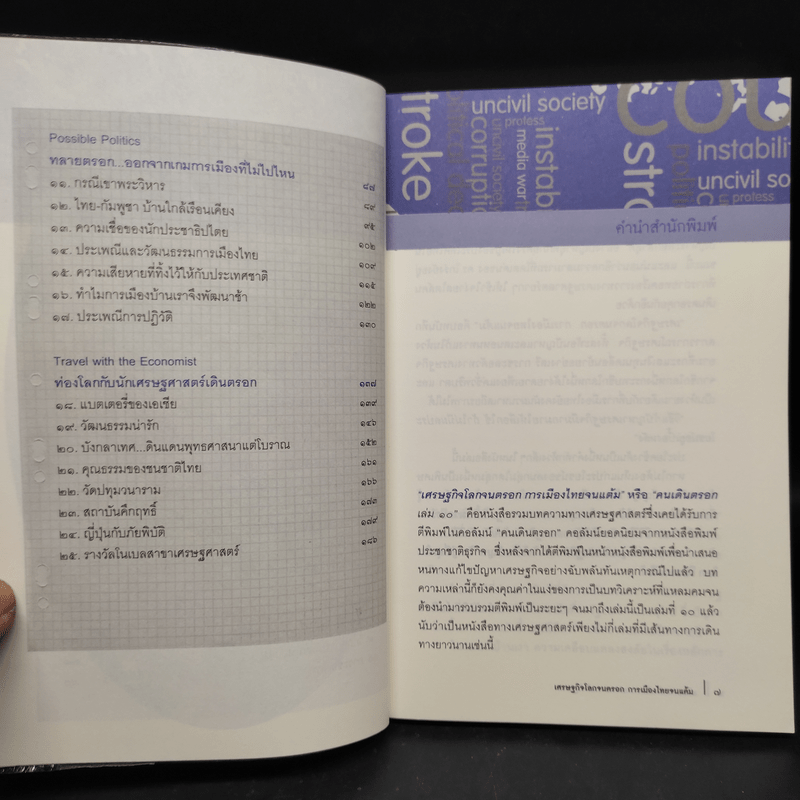 Possible Politics
ทลายตรอก...ออกจากเกมการเมืองที่ไม่ไปไหน ๘๗
๑๑. กรณีเขาพระวิหาร ๘๙
๑๒. ไทย-กัมพูชา บ้านใกล้เรือนเคียง ๙๕
๑๓. ความเชื่อของนักประชาธิปไตย ๑๐๒
๑๔. ประเพณีและวัฒนธรรมการเมืองไทย ๑๐๙
๑๕. ความเสียหายที่ทิ้งไว้ให้กับประเทศชาติ ๑๑๕
๑๖. ทำไมการเมืองบ้านเราจึงพัฒนาช้า ๑๒๒
๑๗. ประเพณีการปฏิวัติ ๑๓๐
Travel with the Economist
ท่องโลกกับนักเศรษฐศาสตร์เดินตรอก ๑๓๗
๑๘. แบตเตอรี่ของเอเชีย ๑๓๙
๑๙. วัฒนธรรมน่ารัก ๑๔๖
๒๐. บังกลาเทศ...ดินแดนพุทธศาสนาแต่โบราณ ๑๕๒
๒๑. คุณธรรมของชนชาติไทย ๑๖๑
๒๒. วัดปทุมวนาราม ๑๖๖
๒๓. สถาบันศักดิ์สิทธิ์ ๑๗๓
๒๔. ญี่ปุ่นกับภัยพิบัติ ๑๗๙
๒๕. รางวัลโนเบลสาขาเศรษฐศาสตร์ ๑๘๖
troke
political
uncivil society
profess
uncivil society
corruptio
media war
instab
cou
stro
politi
instabilit
uncivil soci
profess
คำนำสำนักพิมพ์
"เศรษฐกิจโลกจนตรอก การเมืองไทยจนแต้ม" หรือ "คนเดินตรอก
เล่ม ๑๐" คือหนังสือรวมบทความทางเศรษฐศาสตร์ซึ่งเคยได้รับการ
ตีพิมพ์ในคอลัมน์ "คนเดินตรอก" คอลัมน์ยอดนิยมจากหนังสือพิมพ์
ประชาชาติธุรกิจ ซึ่งหลังจากได้ตีพิมพ์ในหน้าหนังสือพิมพ์เพื่อนำเสนอ
หนทางแก้ไขปัญหาเศรษฐกิจอย่างฉับพลันทันเหตุการณ์ไปแล้ว บท
ความเหล่านี้ก็ยังคงคุณค่าในแง่ของการเป็นบทวิเคราะห์ที่แหลมคมจน
ต้องนำมารวบรวมตีพิมพ์เป็นระยะๆ จนมาถึงเล่มนี้เป็นเล่มที่ ๑๐ แล้ว
นับว่าเป็นหนังสือทางเศรษฐศาสตร์เพียงไม่กี่เล่มที่มีเส้นทางการเดิน
ทางยาวนานเช่นนี้
เศรษฐกิจโลกจนตรอก การเมืองไทยจนแต้ม | ๗